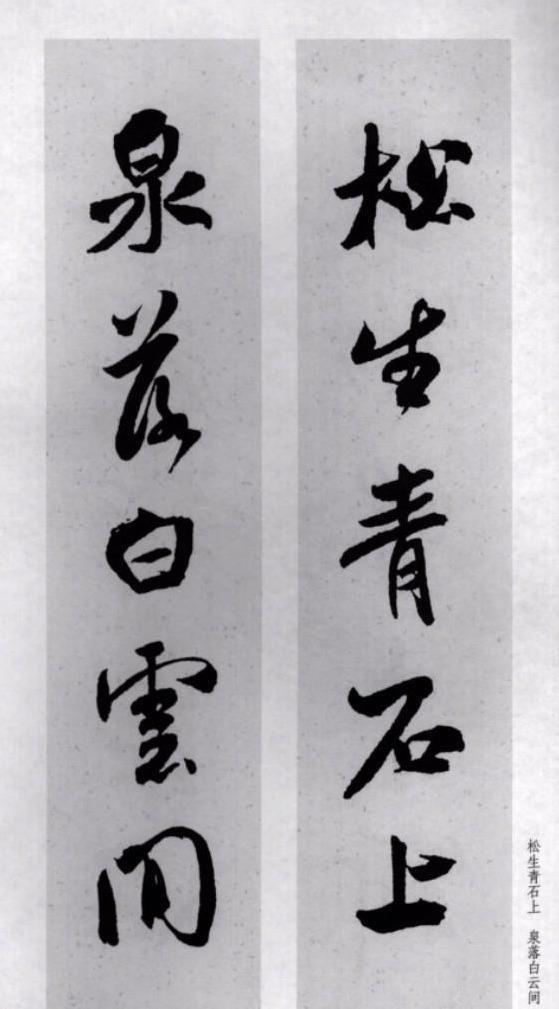 松生青石上
泉落白雲間
松生青石上 泉落白云间